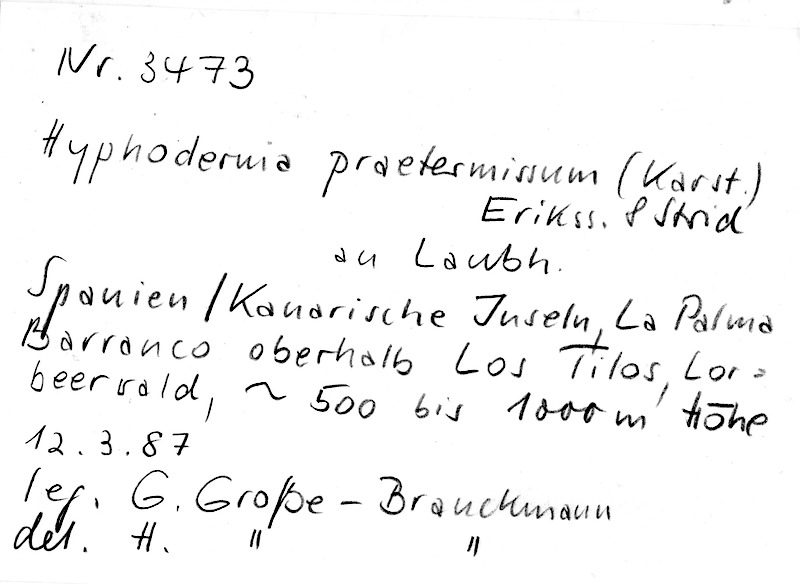 Nr. 3473
Hyphodermia praetermissum (Karst.)
Erikss. & Strid
an Laubh.
Spanien/Kanarische Inseln, La Palma
Barranco oberhalb Los Tilos, Lor=
beerwald, ~ 500 bis 1000 m Höhe
12.3.87
leg. G. Große-Brauckmann
det. H. " "